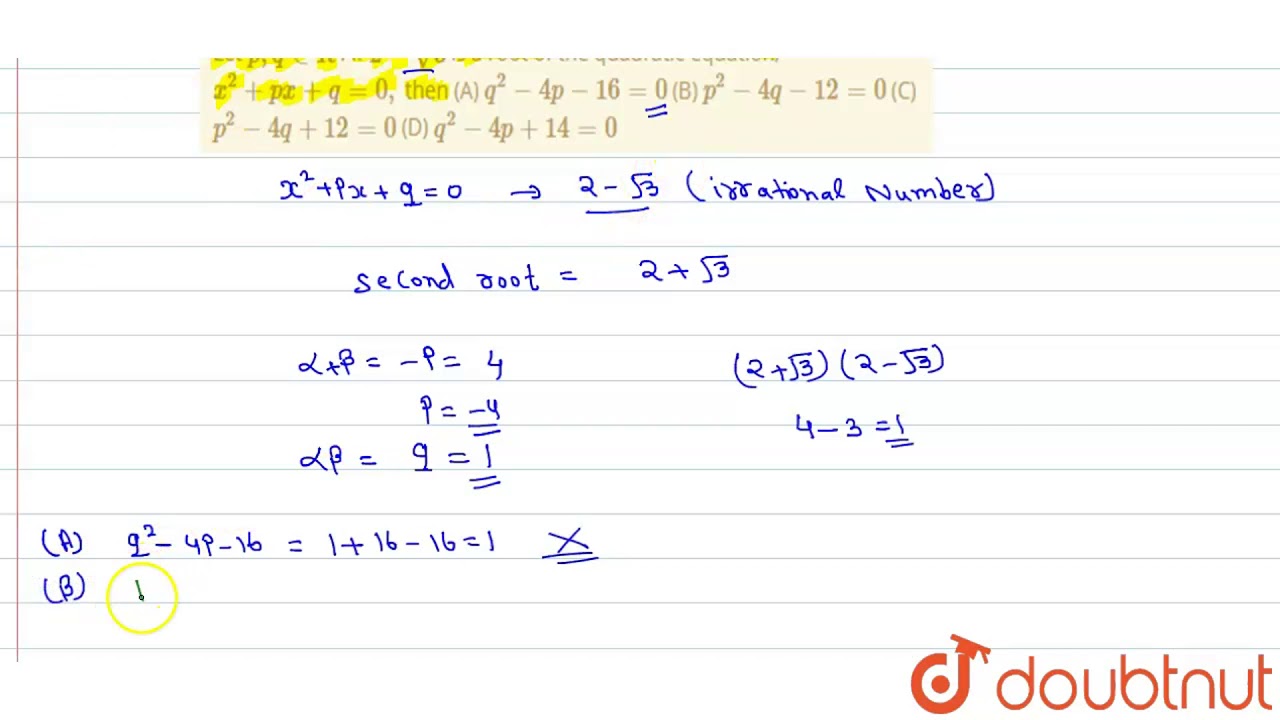 of the quadratic equation,
x² + px + q = 0, then (A) q² − 4p − 16 = 0 (B) p² − 4q − 12 = 0 (C)
p² − 4q + 12 = 0 (D) q² − 4p + 14 = 0
x² + Px + q = 0 → 2 − √3 (irrational Number)
second root = 2 + √3
α+β = −P = 4
P = −4
αβ = q = 1
(2+√3) (2−√3)
4 − 3 = 1
(A) q² − 4P − 16 = 1 + 16 − 16 = 1 ×
(B)
doubtnut